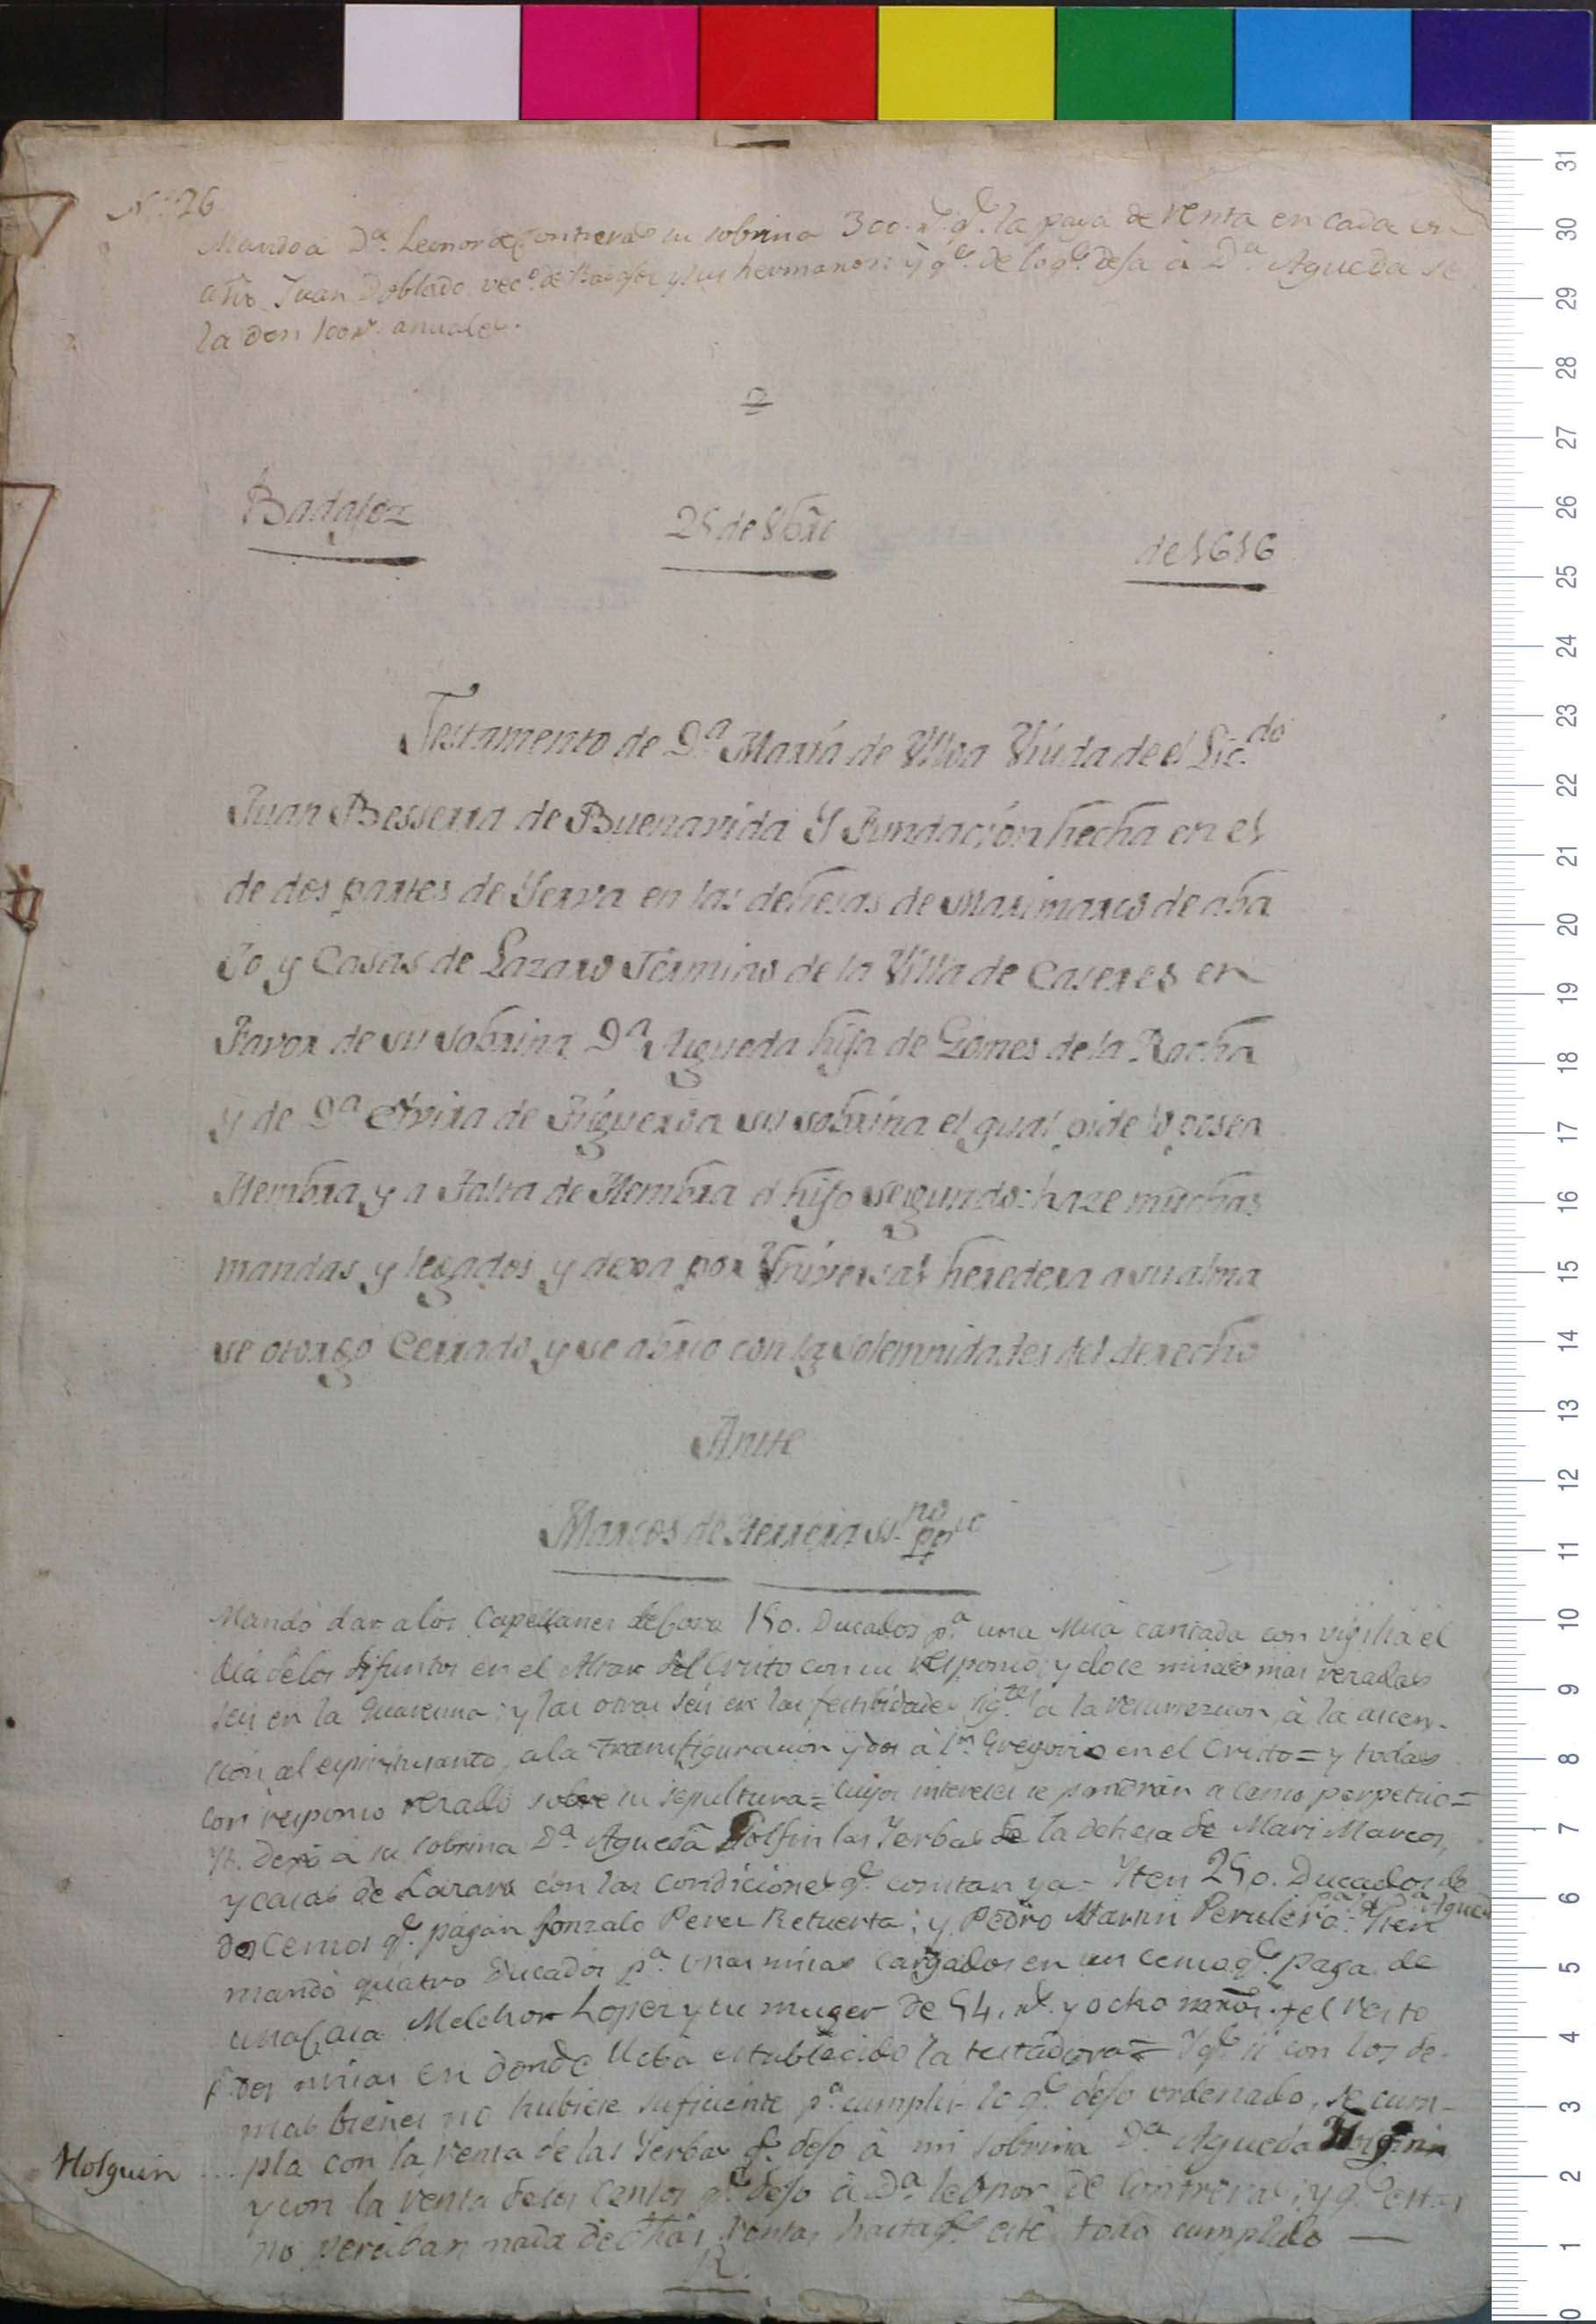 N.º 26
Mando a D.ª Leonor de Contreras su sobrina 300 r.s q.e la paga de renta en cada un
año Juan Doblado vec.º de Badajoz y sus hermanos: y q.e de lo q.e deja à D.ª Agueda se
la den 100 r.s anuales.
Badajoz
25 de 8bre
de 1616
Testamento de D.ª Maria de Ulloa Viuda de el Lic.do
Juan Besserra de Buenavida Y Fundacion hecha en el
de dos partes de Yerva en las dehesas de Marimarcos de aba
Jo y Casas de Lazaro Termino de la Villa de Caseres en
Favor de su sobrina D.ª Agueda hija de Gomes de la Rocha
y de D.ª Elvira de Figueroa su sobrina el qual pide lo posea
Hembra y a Falta de Hembra el hijo segundo: haze muchas
mandas y legados y dexa por Universal heredera a su alma
se otorgo Cerrado y se abrio con las solemnidades del derecho
Ante
Marcos de Herrera ss.no pp.co
Mandó dar a los Capellanes de Coro 150. Ducados p.ª una Misa cantada con vigilia el
dia de los difuntos en el Altar del Cristo con su responso; y doce misas mas rezadas
seis en la Quaresma: y las otras seis en las festibidades sig.tes a la resurrezion, à la ascen-
sion al espiritusanto, a la transfiguracion y dos à S.n Gregorio en el Cristo = y todas
con responso rezado sobre su sepultura = cuyos intereses se pondrán a censo perpetuo =
Yt. dexó à su sobrina D.ª Agueda Golfin las Yerbas de la dehesa de Mari Marcos,
y casas de Lazaro con las condiciones q.e constan ya = Yten 250. Ducados de
dos Censos q.e pagan Gonzalo Perez Retuerta; y Pedro Martin Perulero p.ª d.ª D.ª Agued : Yten
mandó quatro Ducados p.ª unas misas cargados en un censo q.e paga de
una Casa Melchor Lopez y su muger de 54. r.s y ocho mrs. y el resto
p.ª dos misas en donde lleba establecido la testadora = Y q.e si con los de-
mas bienes no hubiere suficiente p.ª cumplir lo q.e dejo ordenado, se cum-
Holguin ... pla con la renta de las Yerbas q.e dejo à mi sobrina D.ª Agueda Holguin
y con la renta de los Censos q.e dejo à D.ª Leonor de Contreras; y q.e estas
no perciban nada de dhas rentas hasta q.e esté todo cumplido —